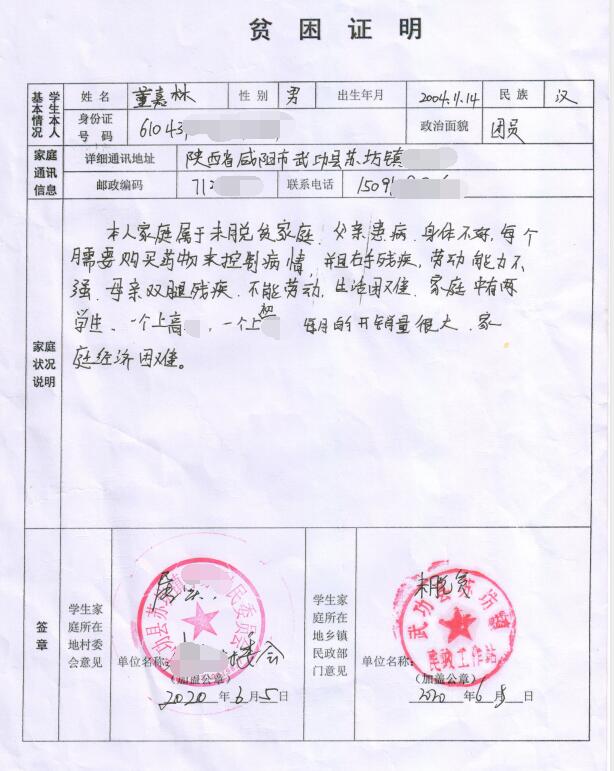 贫困证明
学生本人基本情况
姓名 董嘉林 性别 男 出生年月 2004.11.14 民族 汉
身份证号码 61043 政治面貌 团员
家庭通讯信息
详细通讯地址 陕西省咸阳市武功县苏坊镇
邮政编码 712 联系电话 1509
家庭状况说明
本人家庭属于未脱贫家庭、父亲患病、身体不好,每个
月需要购买药物来控制病情,并且右手残疾,劳动能力不
强、母亲双腿残疾、不能劳动,生活困难、家庭中有两
学生、一个上高 ,一个上初 每月的开销量很大、家
庭经济困难。
签章
学生家庭所在地村委会意见
功县苏 民委员会
单位名称: 委会
(加盖公章)
2020年6月5日
学生家庭所在地乡镇民政部门意见
未脱贫
武功县苏坊镇
民政工作站
单位名称:
(加盖公章)
2020年6月8日